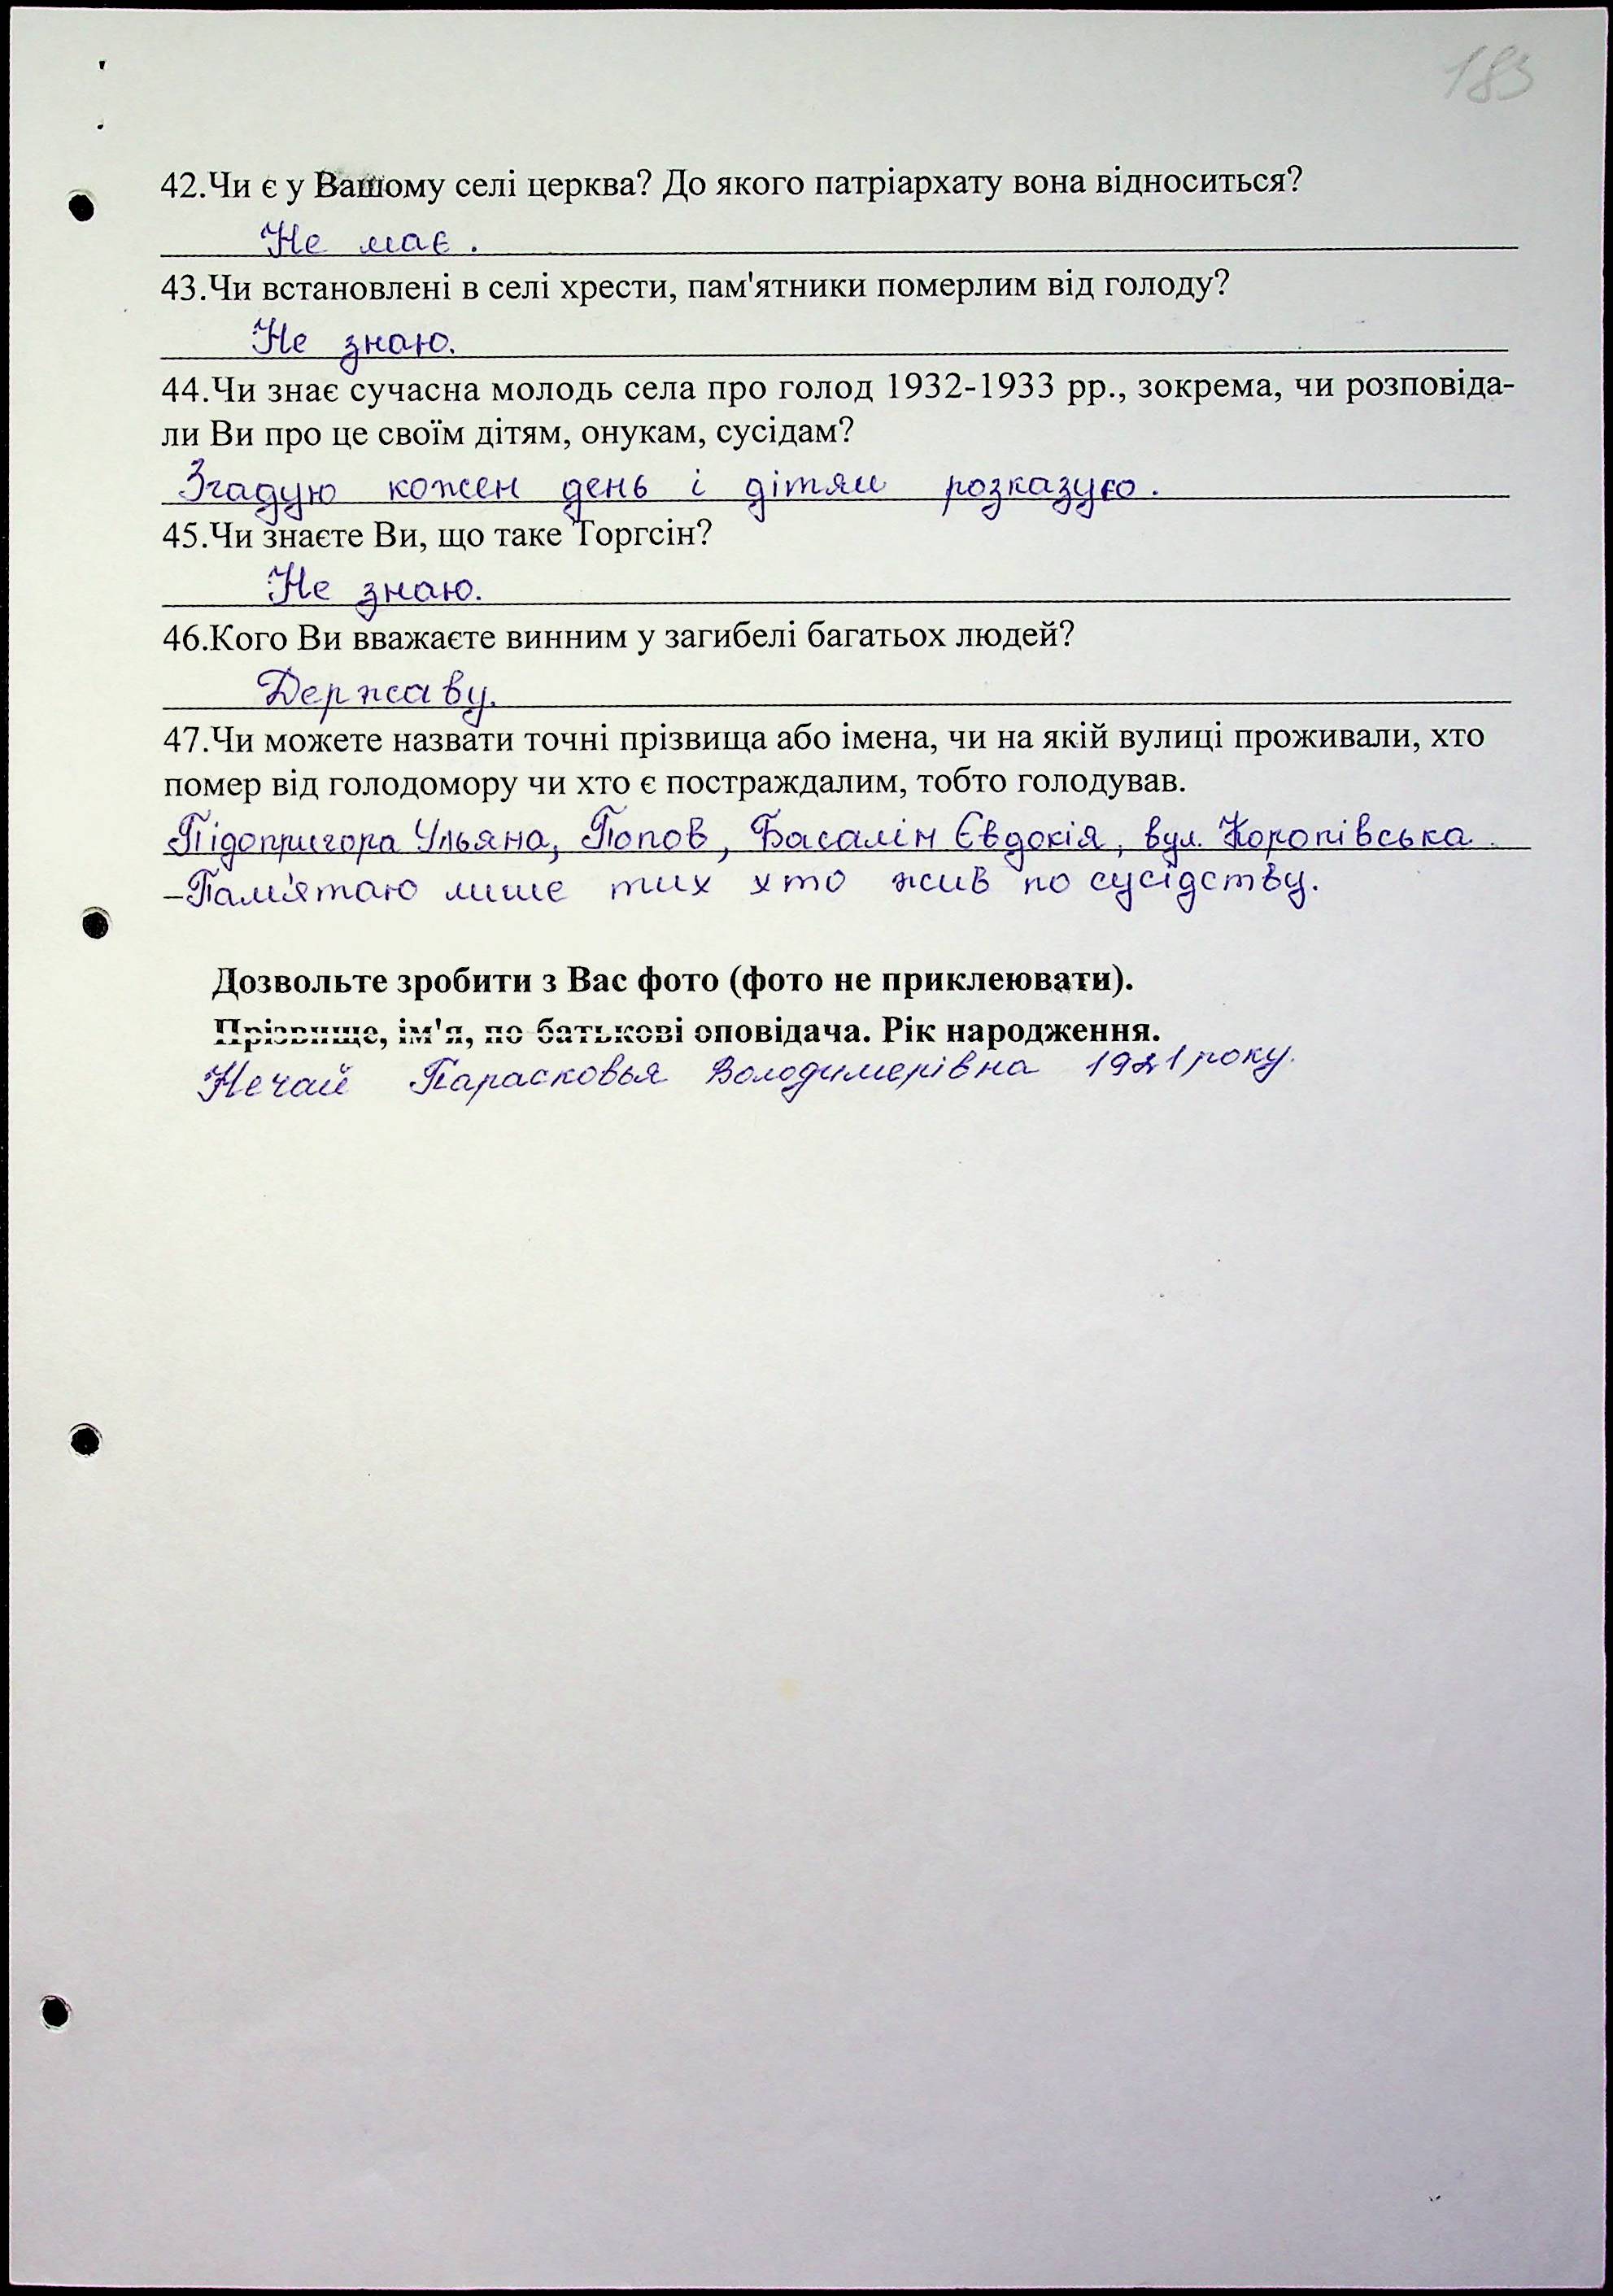 183
42.Чи є у Вашому селі церква? До якого патріархату вона відноситься?
Не має.
43.Чи встановлені в селі хрести, пам'ятники померлим від голоду?
Не знаю.
44.Чи знає сучасна молодь села про голод 1932-1933 рр., зокрема, чи розповіда-
ли Ви про це своїм дітям, онукам, сусідам?
Згадую кожен день і дітям розказую.
45.Чи знаєте Ви, що таке Торгсін?
Не знаю.
46.Кого Ви вважаєте винним у загибелі багатьох людей?
Державу.
47.Чи можете назвати точні прізвища або імена, чи на якій вулиці проживали, хто
помер від голодомору чи хто є постраждалим, тобто голодував.
Підопригора Ульяна, Попов, Басалін Євдокія, вул. Коропівська.
–Пам'ятаю лише тих хто жив по сусідству.
Дозвольте зробити з Вас фото (фото не приклеювати).
Прізвище, ім'я, по батькові оповідача. Рік народження.
Нечай Парасковья Володимерівна 1921 року.